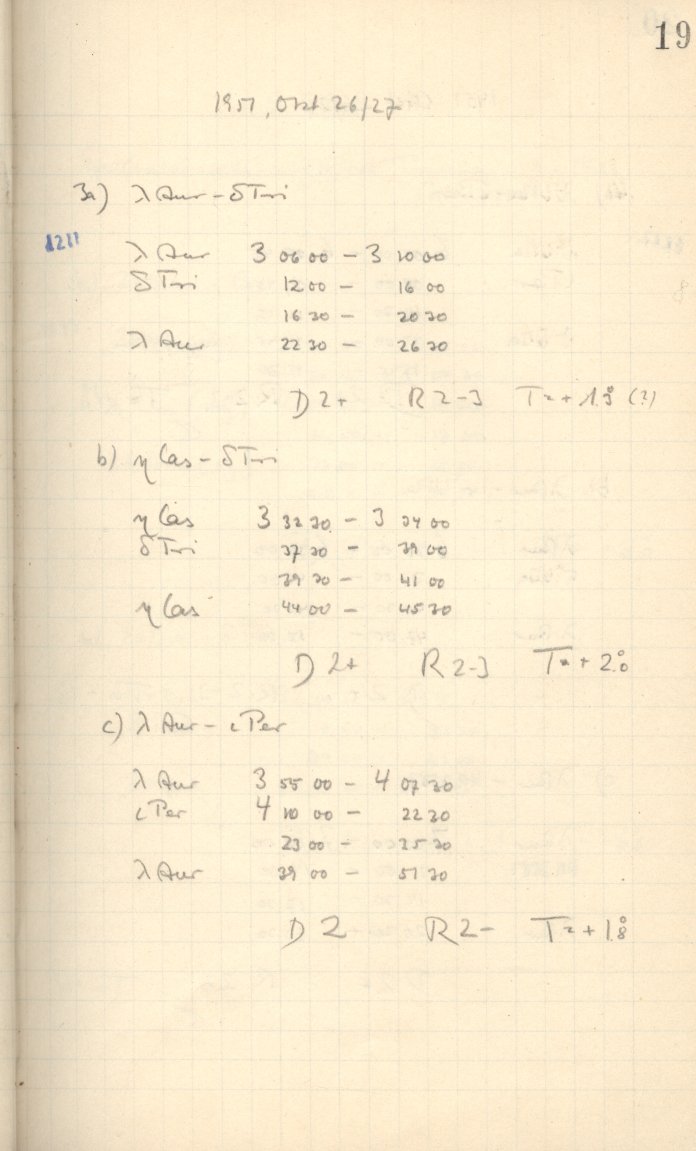 19
1951, Okt 26/27
3a) λ Aur – δ Tri
1211
λ Aur 3 06 00 – 3 10 00
δ Tri 12 00 – 16 00
16 30 – 20 30
λ Aur 22 30 – 26 30
D 2+ R 2-3 T = + 1.°3 (?)
b) η Cas – δ Tri
η Cas 3 32 30 – 3 34 00
δ Tri 37 30 – 39 00
39 30 – 41 00
η Cas 44 00 – 45 30
D 2+ R 2-3 T = + 2.°0
c) λ Aur – ι Per
λ Aur 3 55 00 – 4 07 30
ι Per 4 10 00 – 22 30
23 00 – 35 30
λ Aur 39 00 – 51 30
D 2 R 2- T = + 1.°8